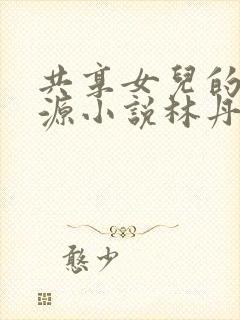 共享女兒的
源小說林丹
憨少